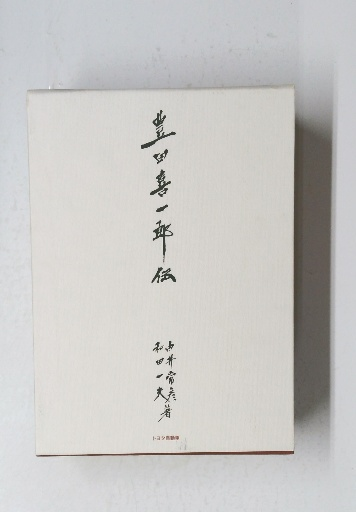 豊田喜一郎伝
由井常彦
和田一夫著
トヨタ自動車